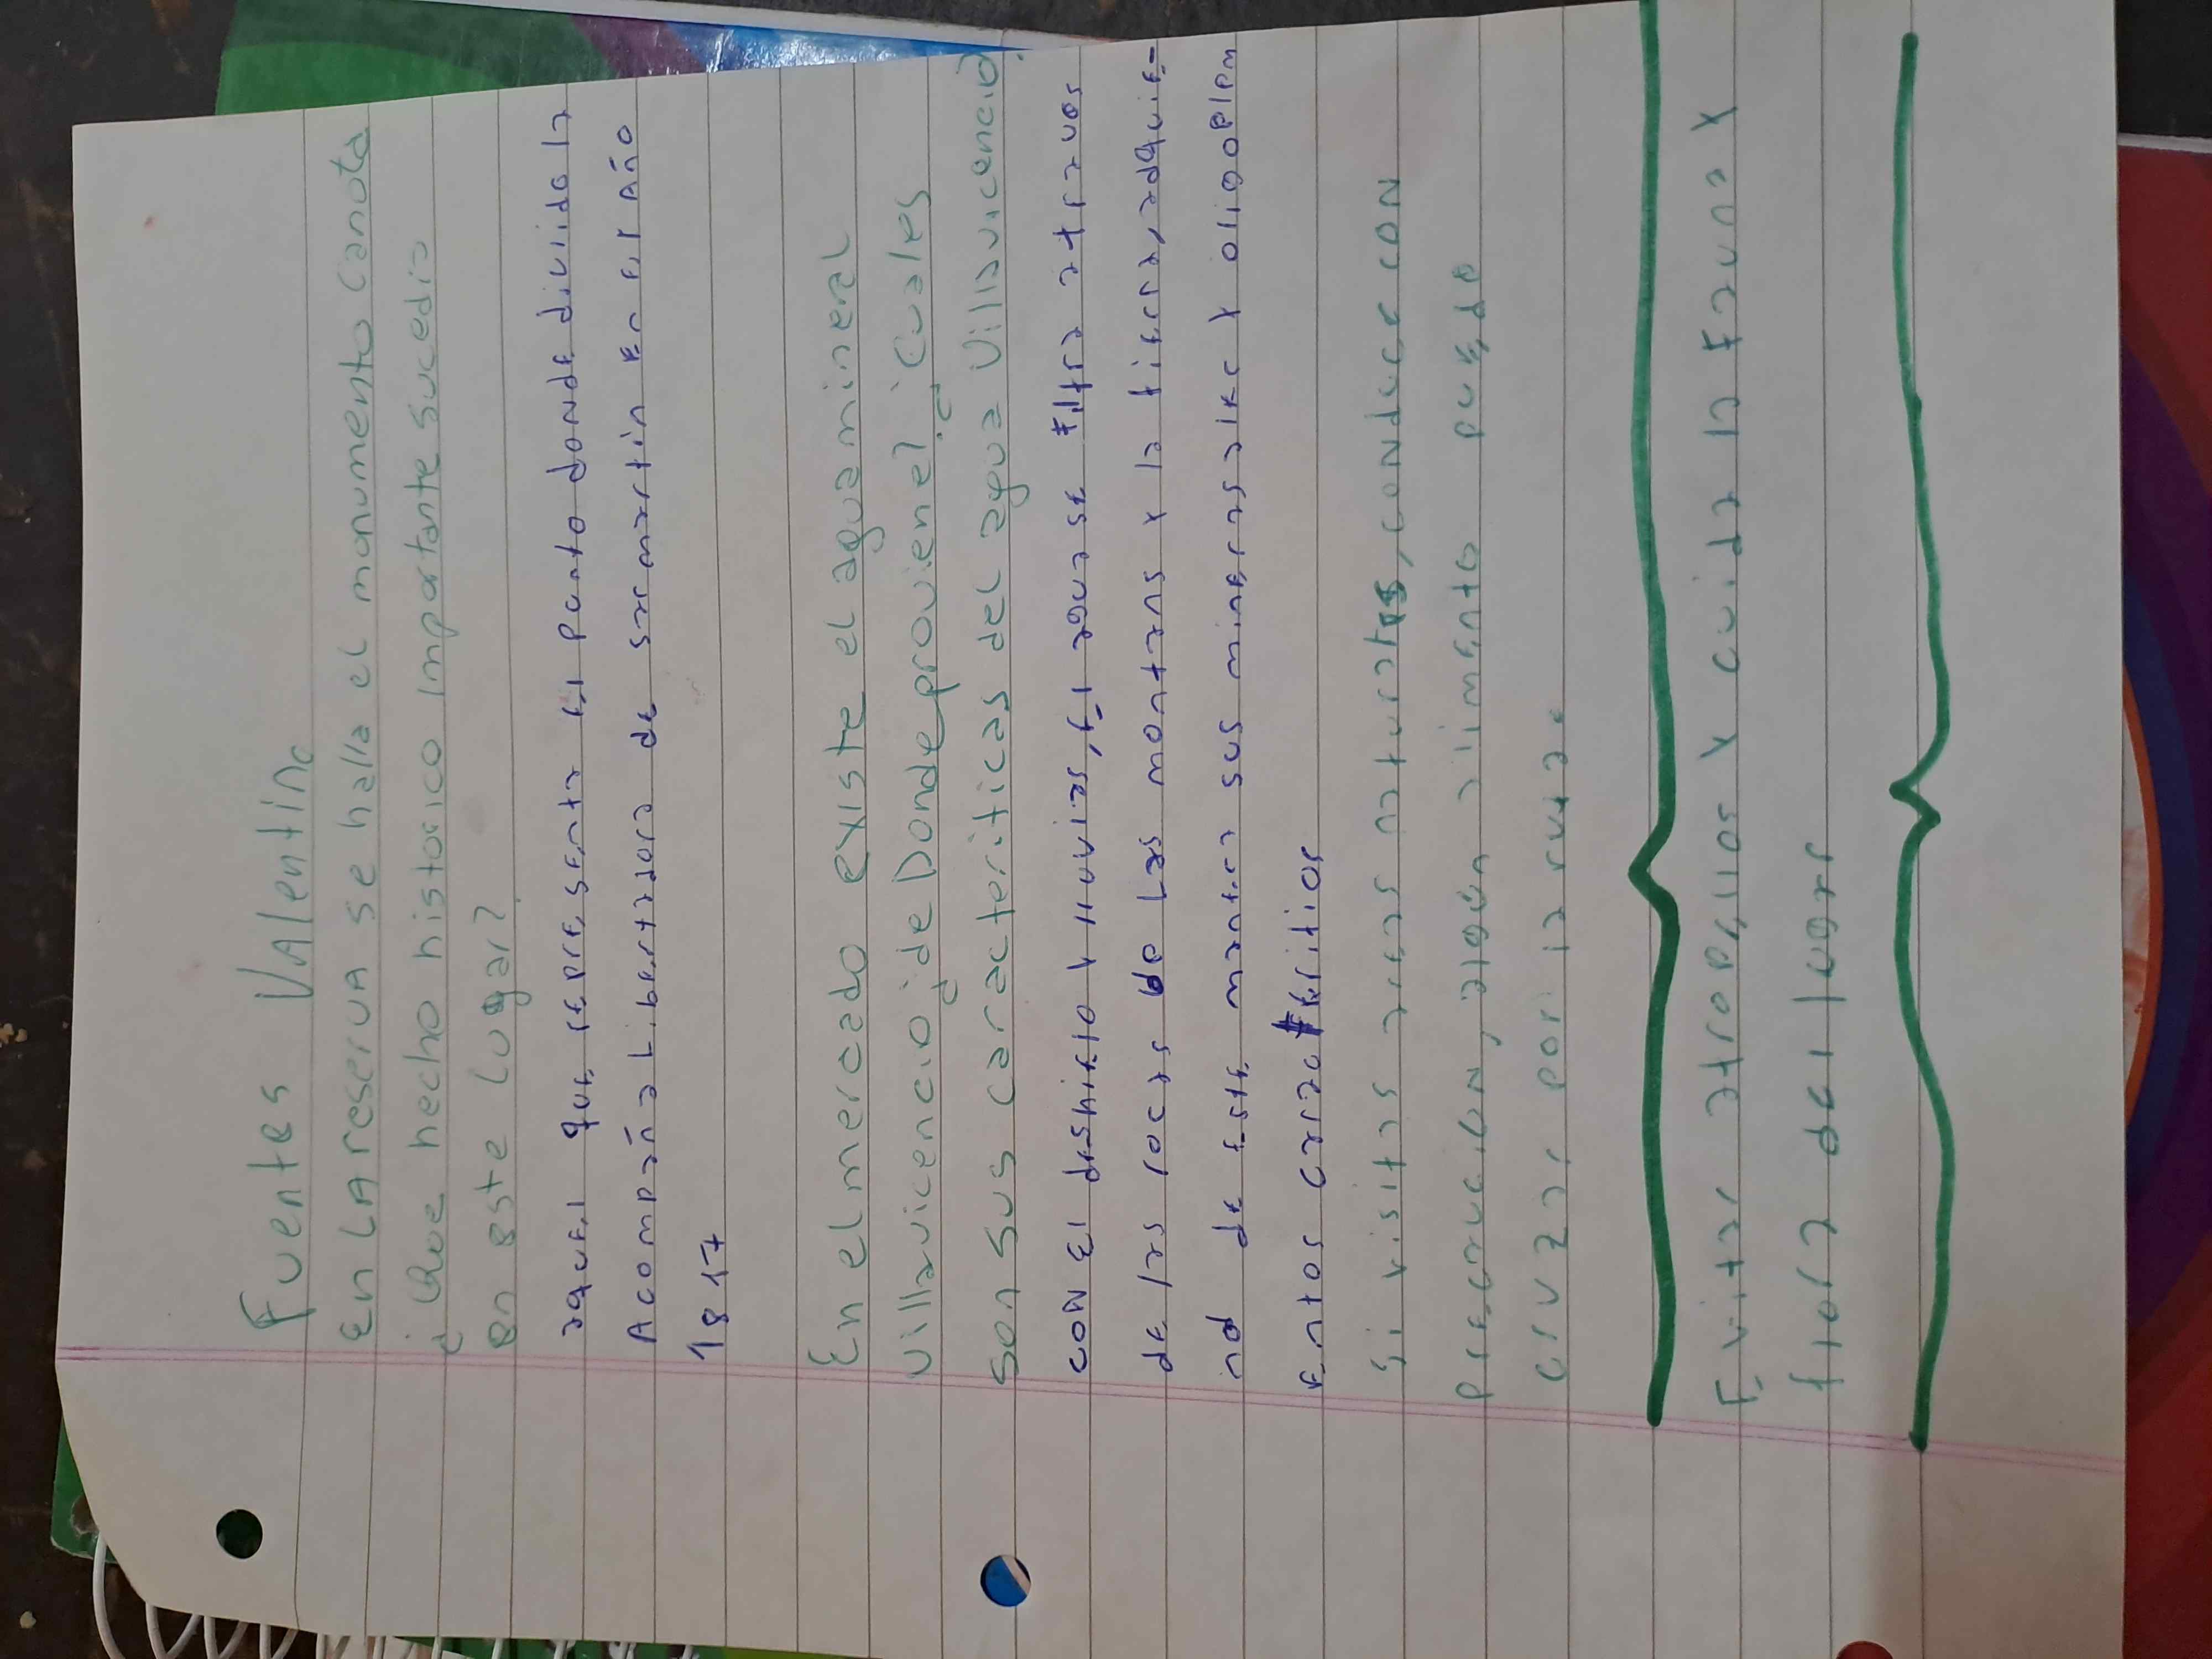 Fuentes Valentino
En LA reserva se halla el monumento Canota
¿Que hecho historico importante sucedio
en este Lugar?
aquel que representa el punto donde dividido la
Acompaña Libertadora de sanmartin en el Año
1817
En el mercado existe el agua mineral
Villavicencio ¿de Donde proviene? ¿Cuales
son sus caracteriticas del agua Villavicencio?
con El deshielo y lluvias, El agua se filtra atravos
de las rocas de Las montans y la tierra, adquie-
nd de este mantra sus minerasalec y oligoelem
Entos caracteritios
Si visitas areas naturales, conduce con
precaucion, algún alimento puede
cruzar por la ruta.
Evitar atropellos y cuidar la fauna y
flora del lugar